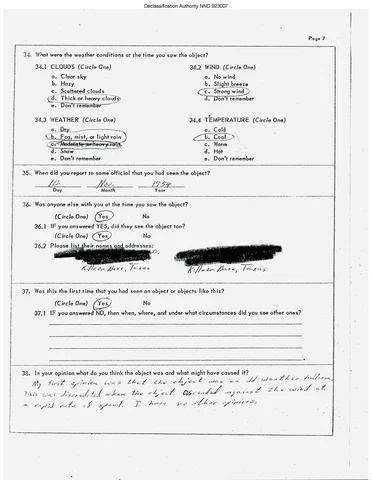 Declassification Authority NND 923007
Page 7
34. What were the weather conditions at the time you saw the object?
34.1 CLOUDS (Circle One) 34.2 WIND (Circle One)
a. Clear sky a. No wind
b. Hazy b. Slight breeze
c. Scattered clouds c. Strong wind
d. Thick or heavy clouds d. Don't remember
e. Don't remember
34.3 WEATHER (Circle One) 34.4 TEMPERATURE (Circle One)
a. Dry a. Cold
b. Fog, mist, or light rain b. Cool
c. Moderate or heavy rain c. Warm
d. Snow d. Hot
e. Don't remember e. Don't remember
35. When did you report to some official that you had seen the object?
Nov. 1954
Day Month Year
36. Was anyone else with you at the time you saw the object?
(Circle One) Yes No
36.1 IF you answered YES, did they see the object too?
(Circle One) Yes No
36.2 Please list their names and addresses:
Killeen Base, Texas Killeen Base, Texas
37. Was this the first time that you had seen an object or objects like this?
(Circle One) Yes No
37.1 IF you answered NO, then when, where, and under what circumstances did you see other ones?
38. In your opinion what do you think the object was and what might have caused it?
My first opinion was that the object was an weather balloon.
This was discredited when the object ascended against the wind at
a rapid rate of speed. I have no other opinions.